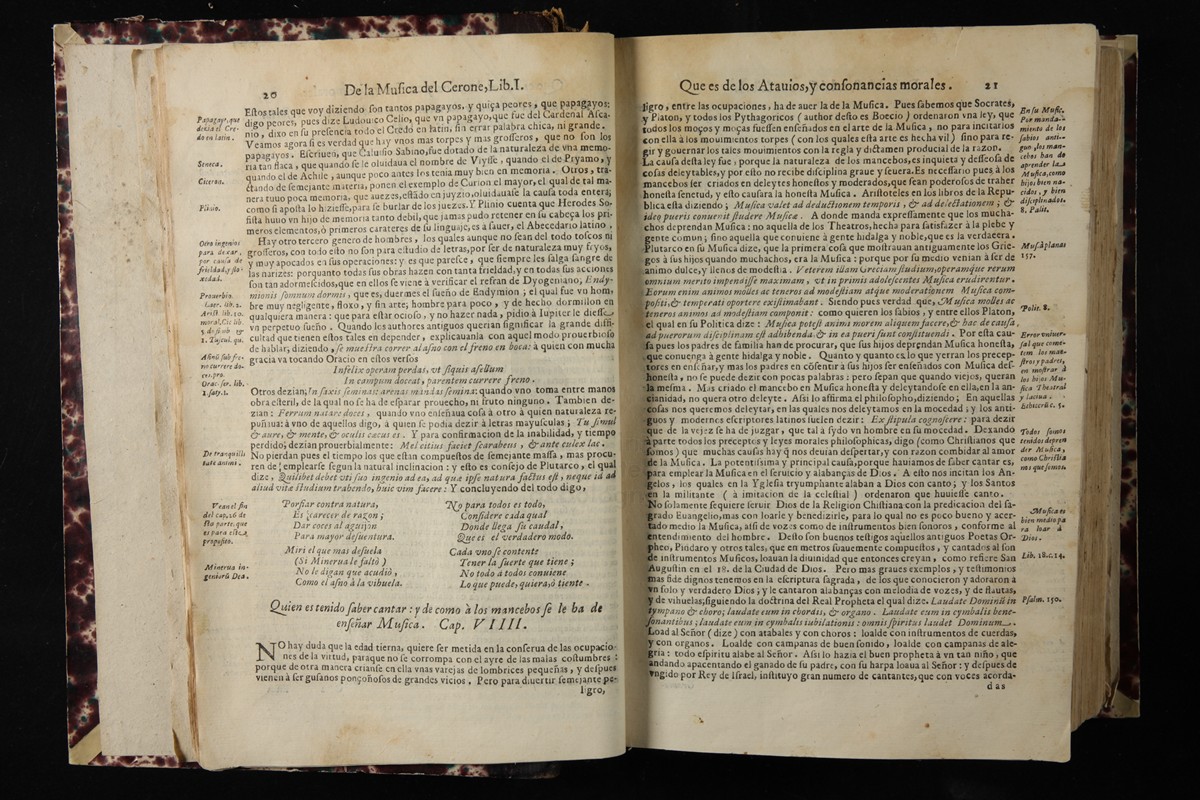 20
De la Musica del Cerone, Lib. I.
Estos tales que voy diziendo son tantos papagayos, y quiça peores, que papagayos:
digo peores, pues dize Ludouico Celio, que vn papagayo, que fue del Cardenal Asca-
nio, dixo en su presencia todo el Credo en latin, sin errar palabra chica, ni grande.
Veamos agora si es verdad que hay vnos mas torpes y mas grosseros, que no son los
papagayos. Escriuen, que Caluisio Sabino, fue dotado de la naturaleza de vna memo-
ria tan flaca, que quando se le oluidaua el nombre de Vlysse, quando el de Pryamo, y
quando el de Achile, aunque poco antes los tenia muy bien en memoria. Otros, tra-
ctando de semejante materia, ponen el exemplo de Curion el mayor, el qual de tal ma-
nera tuuo poca memoria, que auezes, estãdo en juyzio, oluidauase la causa toda entera,
como si aposta lo hiziesse, para se burlar de los juezes. Y Plinio cuenta que Herodes So-
fista huuo vn hijo de memoria tanto debil, que jamas pudo retener en su cabeça los pri-
meros elementos, ò primeros carateres de su linguaje, es à sauer, el Abecedario latino.
Hay otro tercero genero de hombres, los quales aunque no sean del todo toscos ni
grosseros, con todo esto no son para estudio de letras, por ser de naturaleza muy fryos,
y muy apocados en sus operaciones: y es que paresce, que siempre les salga sangre de
las narizes: porquanto todas sus obras hazen con tanta frieldad, y en todas sus acciones
son tan adormescidos, que en ellos se viene à verificar el refran de Dyogeniano; Endy-
mionis somnum dormis, que es, duermes el sueño de Endymion; el qual fue vn hom-
bre muy negligente, floxo, y sin arte; hombre para poco, y de hecho dormilon en
qualquiera manera: que para estar ocioso, y no hazer nada, pidio à Iupiter le diesse
vn perpetuo sueño. Quando los authores antiguos querian significar la grande diffi-
cultad que tienen estos tales en depender, explicauanla con aquel modo prouerbioso
de hablar, diziendo, se muestra correr al asno con el freno en boca: à quien con mucha
gracia va tocando Oracio en estos versos
Infelix operam perdas, vt siquis asellum
In campum doceat, parentem currere freno.
Otros dezian; In saxis seminas: arenas mandas semina: quando vno toma entre manos
obra esteril, de la qual no se ha de esparar prouecho, ni fruto ninguno. Tambien de-
zian: Ferrum natare doces, quando vno enseñaua cosa à otro à quien naturaleza re-
puñaua: à vno de aquellos digo, à quien se podia dezir à letras mayusculas; Tu simul
& aure, & mente, & oculis cæcus es. Y para confirmacion de la inabilidad, y tiempo
perdido; dezian prouerbialmente: Mel citius faciet scarabeus, & ante culex lac.
No pierdan pues el tiempo los que estan compuestos de semejante massa, mas procu-
ren de emplearse segun la natural inclinacion: y esto es consejo de Plutarco, el qual
dize, Quilibet debet vti suo ingenio ad ea, ad quæ ipse natura factus est, neque id ad
aliud vitæ studium trahendo, huic vim facere: Y concluyendo del todo digo,
Porfiar contra natura,
Es carecer de razon;
Dar coces al aguijon
Para mayor desuentura.
Miri el que mas desuela
(Si Minerua le faltò)
No le digan que acudiò,
Como el asno à la vihuela.
No para todos es todo,
Considere cada qual
Donde llega su caudal,
Que es el verdadero modo.
Cada vno se contente
Tener la suerte que tiene;
No todo à todos conuiene
Lo que puede, quiera, ò tiente.
Quien es tenido saber cantar: y de como à los mancebos se le ha de
enseñar Musica. Cap. VIIII.
NO hay duda que la edad tierna, quiere ser metida en la conserua de las ocupacio-
nes de la virtud, paraque no se corrompa con el ayre de las malas costumbres:
porque de otra manera crianse en ella vnas varejas de lombrices pequeñas, y despues
vienen à ser gusanos ponçoñosos de grandes vicios. Pero para diuertir semejante pe-
ligro,
Papagayo, que
dezia el Cre-
do en latin.
Seneca.
Ciceron.
Plinio.
Otro ingenios
para dexar,
por causa de
frieldad, y flo-
xedad.
Prouerbio.
Laer. lib. 1.
Arist. lib. 10.
moral. Cic. lib.
1. Tuscul. qu.
Orac. ser. lib.
1. saty. 1.
De tranquili
tate animi.
Vean el fin
del cap. 26 de
sta parte, que
es para este
proposito.
Minerua in-
geniorũ Dea.
Que es de los Atauios, y consonancias morales.
21
ligro, entre las ocupaciones, ha de auer la de la Musica. Pues sabemos que Socrates,
y Platon, y todos los Pythagoricos (author desto es Boecio) ordenaron vna ley, que
todos los moços y moças fuessen enseñados en el arte de la Musica, no para incitarlos
con ella à los mouimientos torpes (con los quales esta arte es hecha vil) sino para re-
gir y gouernar los tales mouimientos con la regla y dictamen producial de la razon.
La causa desta ley fue, porque la naturaleza de los mancebos, es inquieta y desseosa de
cosas deleytables, y por esto no recibe disciplina graue y seuera. Es necessario pues à los
mancebos ser criados en deleytes honestos y moderados, que sean poderosos de traher
honesta senetud, y esto causara la honesta Musica. Aristoteles en los libros de la Repu-
blica esta diziendo; Musica valet ad deductionem temporis, & ad delectationem; &
ideo pueris conuenit studere Musicæ. A donde manda expressamente que los mucha-
chos deprendan Musica: no aquella de los Theatros, hecha para satisfazer à la plebe y
gente comun; sino aquella que conuiene à gente hidalga y noble, que es la verdacera.
Plutarco en su Musica dize, que la primera cosa que mostrauan antiguamente los Grie-
gos à sus hijos quando muchachos, era la Musica: porque por su medio venian à ser de
animo dulce, y llenos de modestia. Veterem illam Greciam studium, operamque rerum
omnium merito impendisse maximam, vt in primis adolescentes Musica erudirentur.
Eorum enim animos molles ac teneros ad modestiam atque moderationem Musica com-
positi, & temperati oportere existimabant. Siendo pues verdad que, Musica molles ac
teneros animos ad modestiam componit: como quieren los sabios, y entre ellos Platon,
el qual en su Politica dize: Musica potest animi morem aliquem facere, & hac de causa,
ad puerorum disciplinam est adhibenda & in ea pueri sunt constituendi. Por esta cau-
sa pues los padres de familia han de procurar, que sus hijos deprendan Musica honesta,
que conuenga à gente hidalga y noble. Quanto y quanto es lo que yerran los precep-
tores en enseñar, y mas los padres en cõsentir à sus hijos ser enseñados con Musica des-
honesta, no se puede dezir con pocas palabras: pero sepan que quando viejos, queran
la mesma. Mas criado el mancebo en Musica honesta y deleytandose en ella, en la an-
cianidad, no quera otro deleyte. Assi lo affirma el philosopho, diziendo; En aquellas
cosas nos queremos deleytar, en las quales nos deleytamos en la mocedad; y los anti-
guos y modernos escriptores latinos suelen dezir: Ex stipula cognoscere: para dezir
que de la vejez se ha de juzgar, que tal à sydo vn hombre en su mocedad. Dexando
à parte todos los preceptos y leyes morales philosophicas, digo (como Christianos que
somos) que muchas causas hay q̃ nos deuian despertar, y con razon combidar al amor
de la Musica. La potentissima y principal causa, porque hauiamos de saber cantar es,
para emplear la Musica en el seruicio y alabanças de Dios. A esto nos incitan los An-
gelos, los quales en la Yglesia tryumphante alaban a Dios con canto; y los Santos
en la militante (à imitacion de la celestial) ordenaron que huuiesse canto.
No solamente se quiere seruir Dios de la Religion Christiana con la predicacion del sa-
grado Euangelio, mas con loarle y benedizirle, para lo qual no es poco bueno y acer-
tado medio la Musica, assi de vozes como de instrumentos bien sonoros, conforme al
entendimiento del hombre. Desto son buenos testigos aquellos antiguos Poetas Or-
pheo, Pindaro y otros tales, que en metros suauemente compuestos, y cantados al son
de instrumentos Musicos, loauan la diuinidad que entonces creyan, como refiere San
Augustin en el 18. de la Ciudad de Dios. Pero mas graues exemplos, y testimonios
mas fide dignos tenemos en la escriptura sagrada, de los que conocieron y adoraron a
vn solo y verdadero Dios; y le cantaron alabanças con melodia de vozes, y de flautas,
y de vihuelas, siguiendo la doctrina del Real Propheta el qual dize. Laudate Dominũ in
tympano & choro; laudate eum in chordis, & organo. Laudate eum in cymbalis bene-
sonantibus; laudate eum in cymbalis iubilationis: omnis spiritus laudet Dominum.
Load al Señor (dize) con atabales y con choros: loalde con instrumentos de cuerdas,
y con organos. Loalde con campanas de buen sonido, loalde con campanas de ale-
gria: todo espiritu alabe al Señor. Assi lo hazia el buen propheta à vn tan niño, que
andando apacentando el ganado de su padre, con su harpa loaua al Señor: y despues de
vngido por Rey de Israel, instituyo gran numero de cantantes, que con voces acorda-
das
En su Music.
Por manda-
miento de los
sabios anti-
guo, los man-
cebos han de
aprender la
Musica, como
hijos bien na-
cidos, y bien
disciplinados.
8. Polit.
Mus. à planas
157.
Polit. 8.
Error vniuer-
sal que come-
ten los mae-
stros y padres,
en mostrar à
los hijos Mu-
sica Theatral
y laciua.
Ethicor. c. 5.
Todos somos
tenidos depren
der Musica,
como Christia
nos que somos.
Musica es
bien medio pa
ra loar à
Dios.
Lib. 18. c. 14.
Psalm. 150.